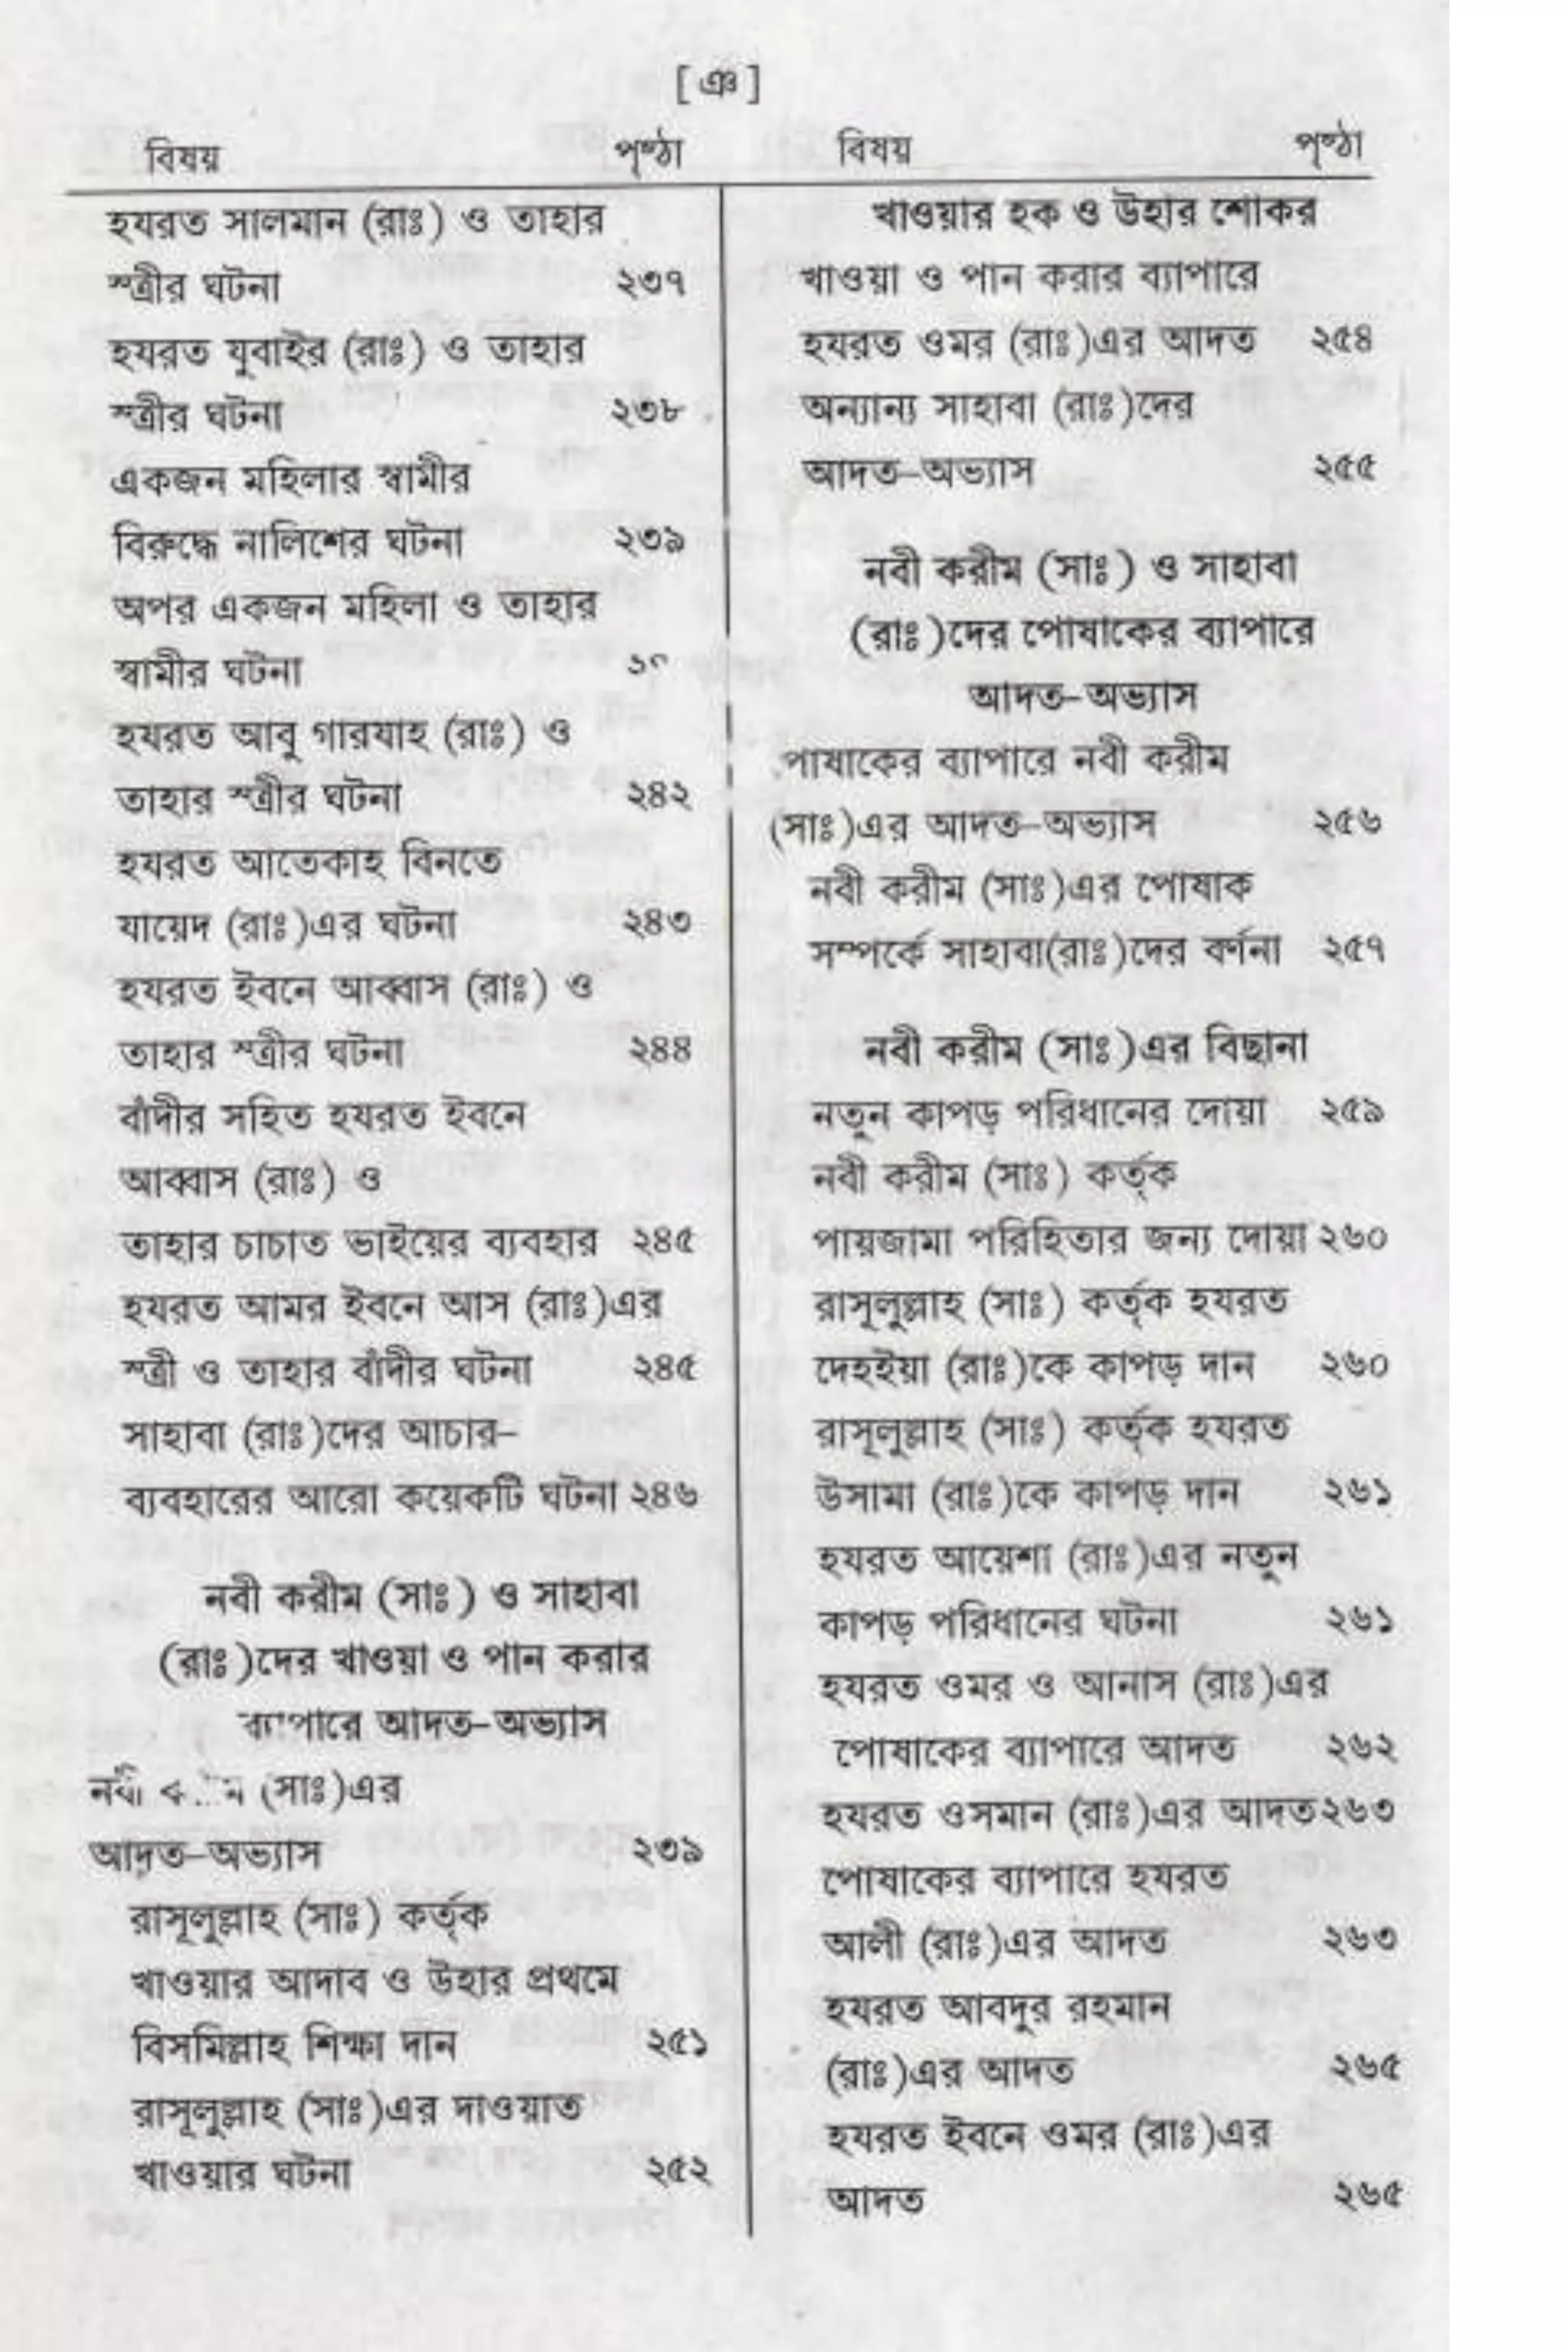 [ ঞ ]
বিষয় পৃষ্ঠা
হযরত সালমান (রাঃ) ও তাহার
স্ত্রীর ঘটনা ২৩৭
হযরত যুবাইর (রাঃ) ও তাহার
স্ত্রীর ঘটনা ২৩৮
একজন মহিলার স্বামীর
বিরুদ্ধে নালিশের ঘটনা ২৩৯
অপর একজন মহিলা ও তাহার
স্বামীর ঘটনা
হযরত আবু গারযাহ (রাঃ) ও
তাহার স্ত্রীর ঘটনা ২৪২
হযরত আতেকাহ বিনতে
যায়েদ (রাঃ)এর ঘটনা ২৪৩
হযরত ইবনে আব্বাস (রাঃ) ও
তাহার স্ত্রীর ঘটনা ২৪৪
বাঁদীর সহিত হযরত ইবনে
আব্বাস (রাঃ) ও
তাহার চাচাত ভাইয়ের ব্যবহার ২৪৫
হযরত আমর ইবনে আস (রাঃ)এর
স্ত্রী ও তাহার বাঁদীর ঘটনা ২৪৫
সাহাবা (রাঃ)দের আচার-
ব্যবহারের আরো কয়েকটি ঘটনা ২৪৬
নবী করীম (সাঃ) ও সাহাবা
(রাঃ)দের খাওয়া ও পান করার
ব্যাপারে আদত-অভ্যাস
নবী (সাঃ)এর
আদত-অভ্যাস ২৩৯
রাসূলুল্লাহ (সাঃ) কর্তৃক
খাওয়ার আদাব ও উহার প্রথমে
বিসমিল্লাহ শিক্ষা দান ২৫১
রাসূলুল্লাহ (সাঃ)এর দাওয়াত
খাওয়ার ঘটনা ২৫২
বিষয় পৃষ্ঠা
খাওয়ার হক ও উহার শোকর
খাওয়া ও পান করার ব্যাপারে
হযরত ওমর (রাঃ)এর আদত ২৫৪
অন্যান্য সাহাবা (রাঃ)দের
আদত-অভ্যাস ২৫৫
নবী করীম (সাঃ) ও সাহাবা
(রাঃ)দের পোষাকের ব্যাপারে
আদত-অভ্যাস
পাষাকের ব্যাপারে নবী করীম
(সাঃ)এর আদত-অভ্যাস ২৫৬
নবী করীম (সাঃ)এর পোষাক
সম্পর্কে সাহাবা(রাঃ)দের বর্ণনা ২৫৭
নবী করীম (সাঃ)এর বিছানা
নতুন কাপড় পরিধানের দোয়া ২৫৯
নবী করীম (সাঃ) কর্তৃক
পায়জামা পরিহিতার জন্য দোয়া ২৬০
রাসূলুল্লাহ (সাঃ) কর্তৃক হযরত
দেহইয়া (রাঃ)কে কাপড় দান ২৬০
রাসূলুল্লাহ (সাঃ) কর্তৃক হযরত
উসামা (রাঃ)কে কাপড় দান ২৬১
হযরত আয়েশা (রাঃ)এর নতুন
কাপড় পরিধানের ঘটনা ২৬১
হযরত ওমর ও আনাস (রাঃ)এর
পোষাকের ব্যাপারে আদত ২৬২
হযরত ওসমান (রাঃ)এর আদত ২৬৩
পোষাকের ব্যাপারে হযরত
আলী (রাঃ)এর আদত ২৬৩
হযরত আবদুর রহমান
(রাঃ)এর আদত ২৬৫
হযরত ইবনে ওমর (রাঃ)এর
আদত ২৬৫